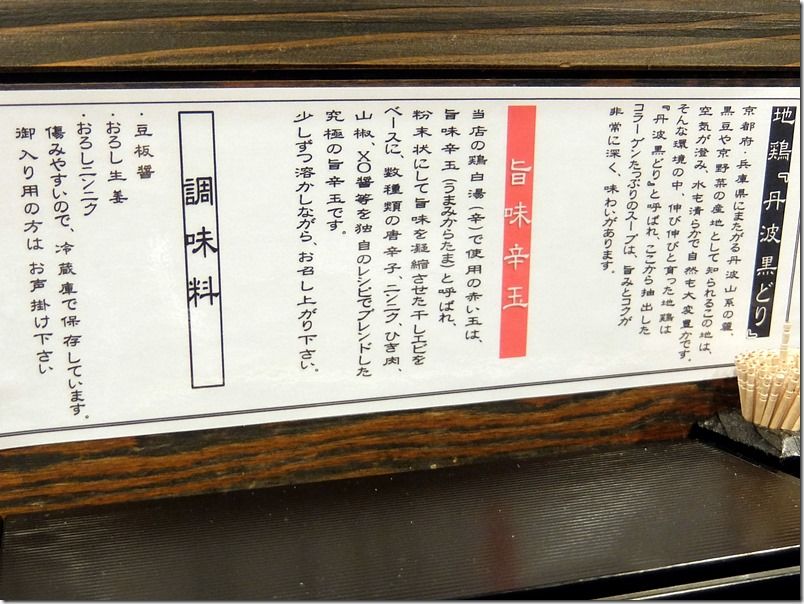 地鶏『丹波黒どり』
京都府・兵庫県にまたがる丹波山系の麓、
黒豆や京野菜の産地として知られるこの地は、
空気が澄み、水も清らかで自然も大変豊かです。
そんな環境の中、伸び伸びと育った地鶏は
『丹波黒どり』と呼ばれ、ここから抽出した
コラーゲンたっぷりのスープは、旨みとコクが
非常に深く、味わいがあります。
旨味辛玉
当店の鶏白湯(辛)で使用の赤い玉は、
旨味辛玉(うまみからたま)と呼ばれ、
粉末状にして旨味を凝縮させた干しエビを
ベースに、数種類の唐辛子、ニンニク、ひき肉、
山椒、XO醤等を独自のレシピでブレンドした
究極の旨辛玉です。
少しずつ溶かしながら、お召し上がり下さい。
調味料
・豆板醤
・おろし生姜
・おろしニンニク
傷みやすいので、冷蔵庫で保存しています。
御入り用の方は お声掛け下さい